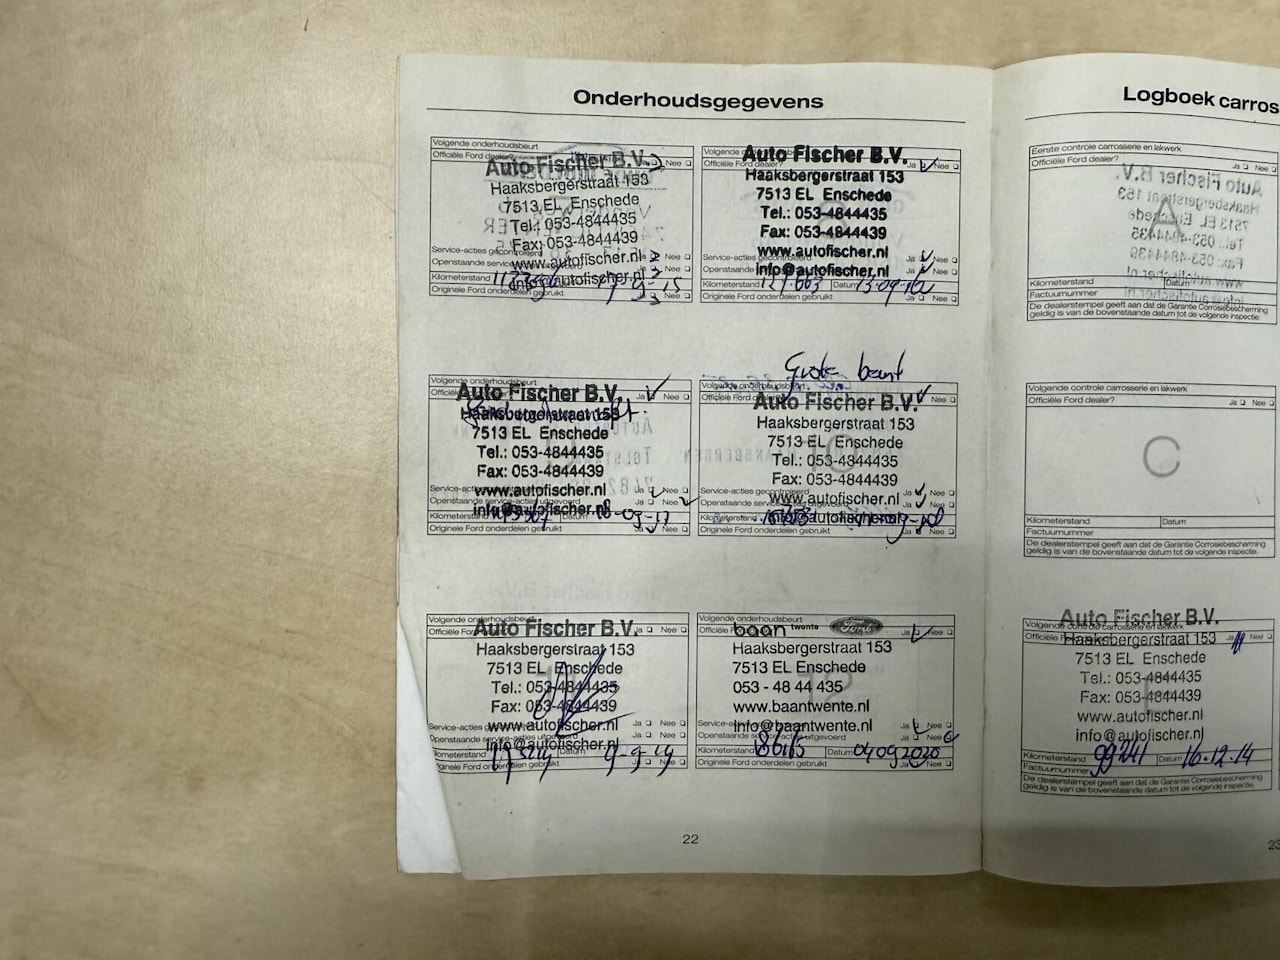 Onderhoudsgegevens
Volgende onderhoudsbeurt
Officiële Ford dealer?
Auto Fischer B.V.
Nee
Haaksbergerstraat 153
7513 EL Enschede
Tel.: 053-4844435
Fax: 053-4844439
www.autofischer.nl
Service-acties gecontroleerd
Ja Nee
Openstaande
Ja Nee
info@autofischer.nl
Kilometerstand
Originele Ford onderdelen gebruikt
Nee
Volgende
Auto Fischer B.V.
Ja Nee
Haaksbergerstraat 153
7513 EL Enschede
Tel.: 053-4844435
Fax: 053-4844439
www.autofischer.nl
Service-acties
Ja Nee
Openstaande
info@autofischer.nl
Ja Nee
Kilometerstand
127.663
Datum
13-09-16
Originele Ford onderdelen gebruikt
Ja Nee
Volgende onderhoudsbeurt
Auto Fischer B.V.
Ja Nee
Haaksbergerstraat 153
7513 EL Enschede
Tel.: 053-4844435
Fax: 053-4844439
www.autofischer.nl
Ja Nee
Openstaande service-acties uitgevoerd
Ja Nee
info@autofischer.nl
Kilometerstand
Datum
18-09-17
Originele Ford onderdelen gebruikt
Ja Nee
Grote beurt
Volgende onderhoudsbeurt
Auto Fischer B.V.
Ja Nee
Haaksbergerstraat 153
7513 EL Enschede
Tel.: 053-4844435
Fax: 053-4844439
Service-acties gecontroleerd
Ja Nee
www.autofischer.nl
Openstaande service-acties uitgevoerd
Ja Nee
Kilometerstand
info@autofischer.nl
Originele Ford onderdelen gebruikt
Ja Nee
Volgende onderhoudsbeurt
Auto Fischer B.V.
Ja Nee
Haaksbergerstraat 153
7513 EL Enschede
Tel.: 053-4844435
Fax: 053-4844439
www.autofischer.nl
Ja Nee
Openstaande service-acties
Ja Nee
info@autofischer.nl
Datum
Originele Ford onderdelen gebruikt
Ja Nee
Volgende onderhoudsbeurt
baan twente Ford
Ja Nee
Haaksbergerstraat 153
7513 EL Enschede
053 - 48 44 435
www.baantwente.nl
info@baantwente.nl
Ja Nee
Openstaande service-acties uitgevoerd
Ja Nee
Kilometerstand
Datum
04092020
Originele Ford onderdelen gebruikt
Ja Nee
22
Logboek carros
Eerste controle carrosserie en lakwerk
Officiële Ford dealer?
Ja Nee
A
Kilometerstand
Datum
Factuurnummer
De dealerstempel geeft aan dat de Garantie Corrosiebescherming
geldig is van de bovenstaande datum tot de volgende inspectie.
Volgende controle carrosserie en lakwerk
Officiële Ford dealer?
Ja Nee
C
Kilometerstand
Datum
Factuurnummer
De dealerstempel geeft aan dat de Garantie Corrosiebescherming
geldig is van de bovenstaande datum tot de volgende inspectie.
Auto Fischer B.V.
Volgende controle carrosserie en lakwerk
Haaksbergerstraat 153
Ja Nee
7513 EL Enschede
Tel.: 053-4844435
Fax: 053-4844439
www.autofischer.nl
info@autofischer.nl
Kilometerstand
99241
Datum
16.12.14
Factuurnummer
De dealerstempel geeft aan dat de Garantie Corrosiebescherming
geldig is van de bovenstaande datum tot de volgende inspectie.